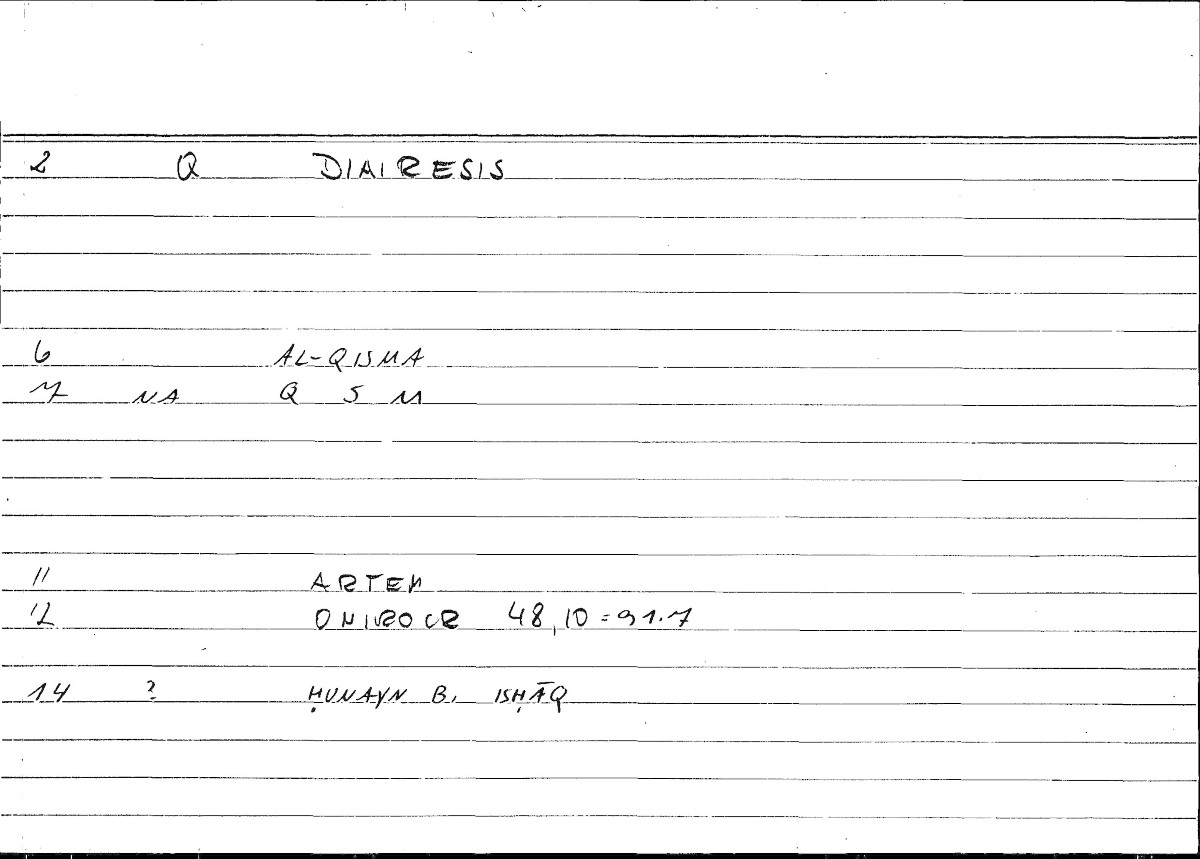 2 Q DIAIRESIS
6 AL-QISMA
7 NA Q S M
11 ARTEM
12 ONIROCR 48,10=91.7
14 ? ḤUNAYN B. ISḤĀQ